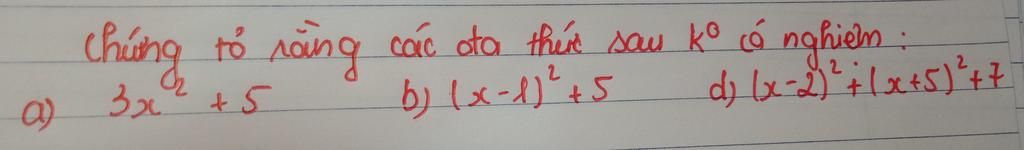 Chứng tỏ rằng các đa thức sau k⁰ có nghiệm :
a) 3x² + 5 b) (x-1)² + 5 d) (x-2)² + (x+5)² + 7